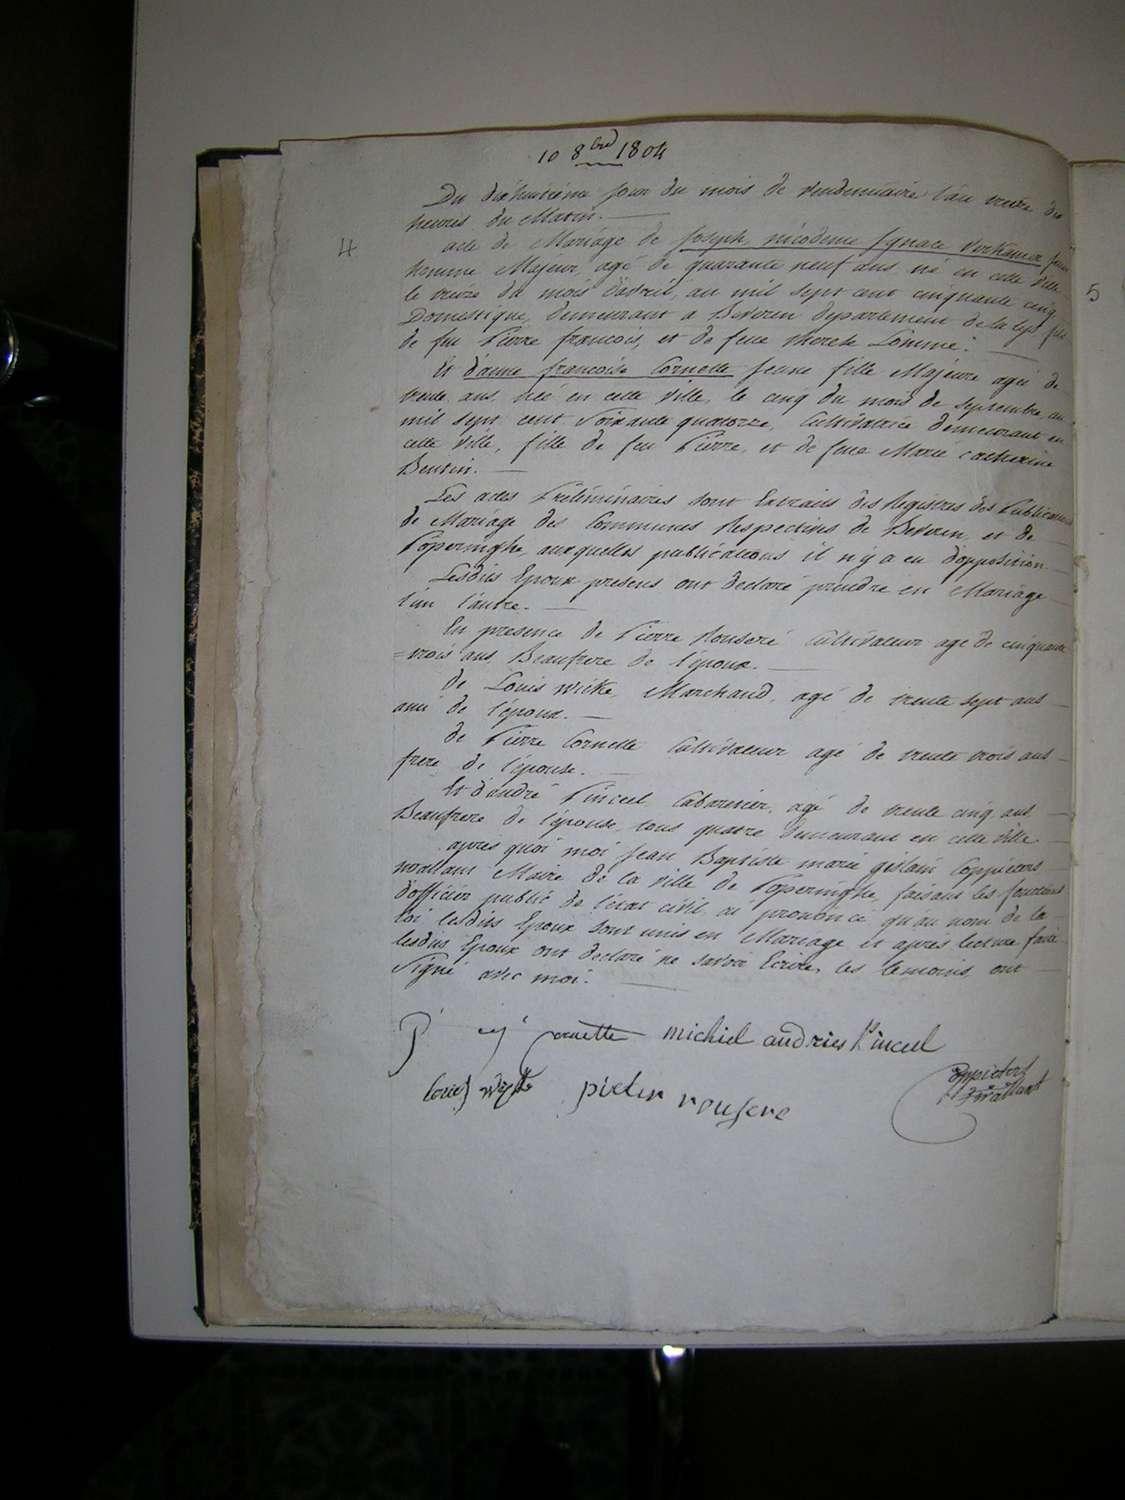 10 8bre 1804
Du dixhuitième jour du mois de vendemiaire l'an treize dix
heures du Matin.
4
acte de Mariage de Joseph nicodeme Ignace Verhamer jeune
homme Majeur, agé de quarante neuf ans, né en cette ville
le treize du mois d'avril, an mil sept cent cinquante cinq
5
Domestique, demeurant a Beveren departement de la Lys fils
de feu Pierre francois, et de feue therese Lomme.
Et d'anne francoise Cornette jeune fille Majeure agée de
trente ans, née en cette ville, le cinq du mois de septembre, an
mil sept cent soixante quatorze, Cultivatrice demeurant en
cette ville, fille de feu Pierre, et de feue Marie catherine
Les actes Préliminaires sont Extraits des Registres des Publications
de Mariage des Communes Respectives de Beveren, et de
Poperinghe, auxquelles publications il n'y a eu d'opposition
Lesdits Epoux presens ont declaré prendre en Mariage
l'un l'autre.
En presence de Pierre Rouseré cultivateur agé de cinquante
=trois ans, Beaufrere de l'époux.
de Louis Wicke, Marchand, agé de trente sept ans
ami de l'époux.
de Pierre Cornette Cultivateur agé de trente trois ans
frere de l'épouse.
Et d'andré Pinceel Cabaretier, agé de trente cinq ans
Beaufrere de l'épouse, tous quatre demeurant en cette ville
après quoi moi Jean Baptiste marie gislain Coppieters
wallant Maire de la ville de Poperinghe, faisant les fonctions
d'officier public de l'etat civil, ai prononcé qu'au nom de la
loi lesdits Epoux sont unis en Mariage et après lecture faite
lesdits Epoux ont declaré ne savoir Ecrire, les temoins ont
Signé avec moi.
P cornette michiel andries Pinceel
Coppieters
louis
wallant
pieter rousere